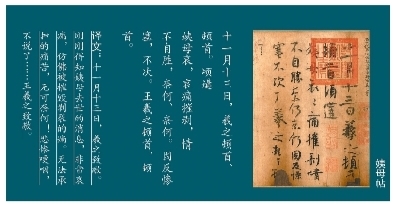 姨母帖
十一月十三日羲之頓
首頓首頃遘
姨母哀哀痛摧剝情
不自勝奈何奈何因反慘
塞不次王羲之頓首
十一月十三日,羲之頓首、
頓首。頃遘
姨母哀,哀痛摧剝,情
不自勝,奈何、奈何。因反慘
塞,不次。王羲之頓首、頓
首。
译文:十一月十三日,羲之致敬。
刚刚得知姨母去世的消息,非常哀
痛,仿佛被摧毁割裂的痛。无法承
的痛苦,无可奈何!悲惨哽咽,
不说了……王羲之致敬。